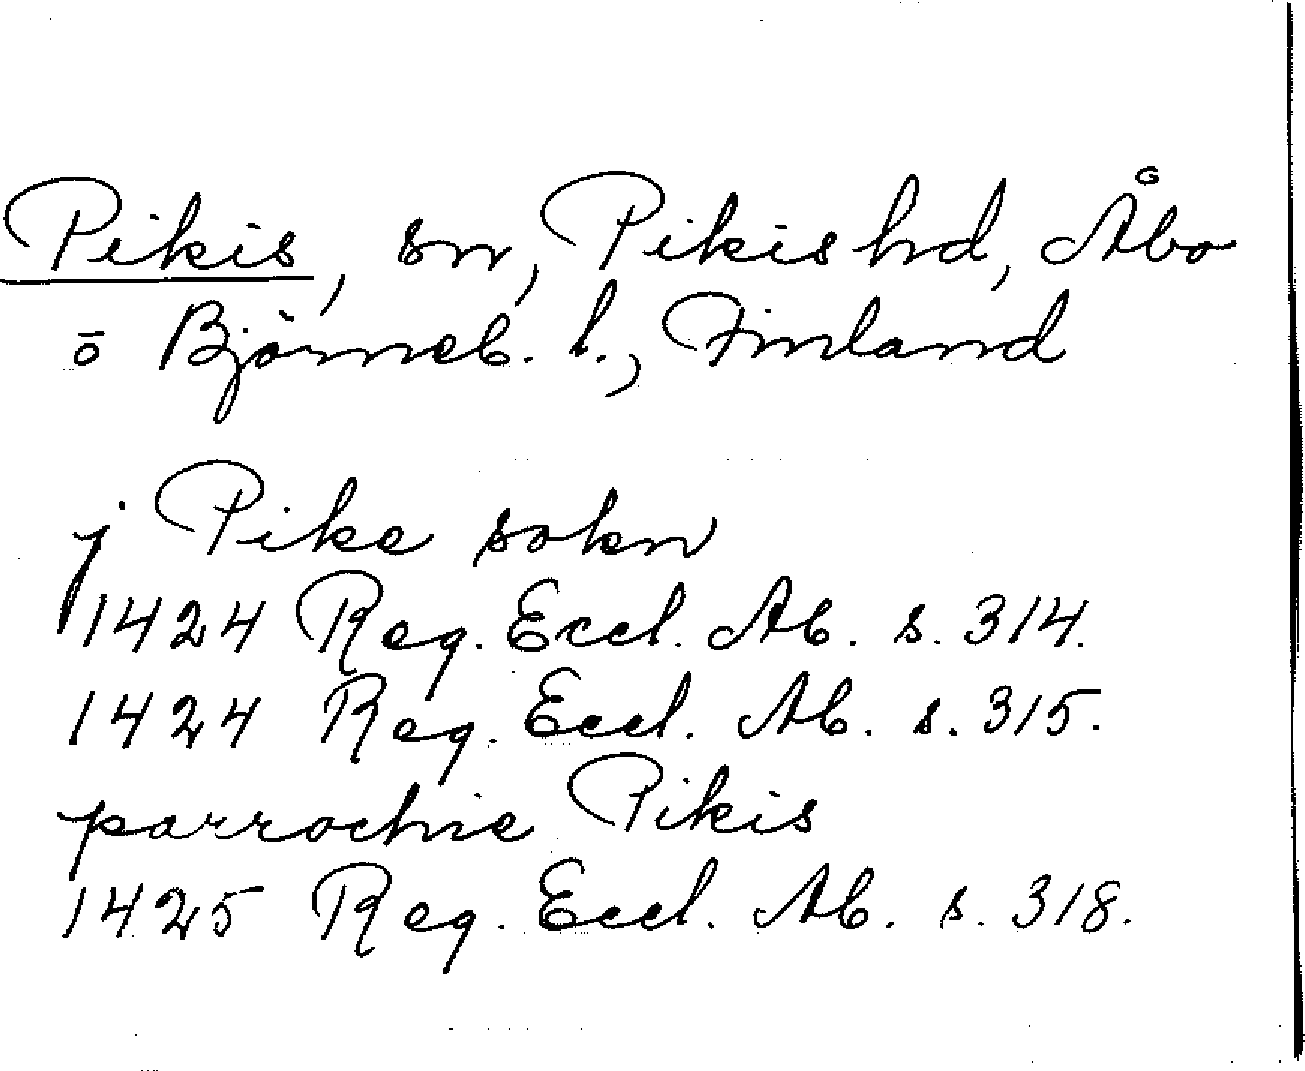 Pikis, sn, Pikis hd, Åbo
ō Björneb. l., Finland
j Pike sokn
1424 Reg. Eccl. Ab. s. 314.
1424 Reg. Eccl. Ab. s. 315.
parrochie Pikis
1425 Reg. Eccl. Ab. s. 318.